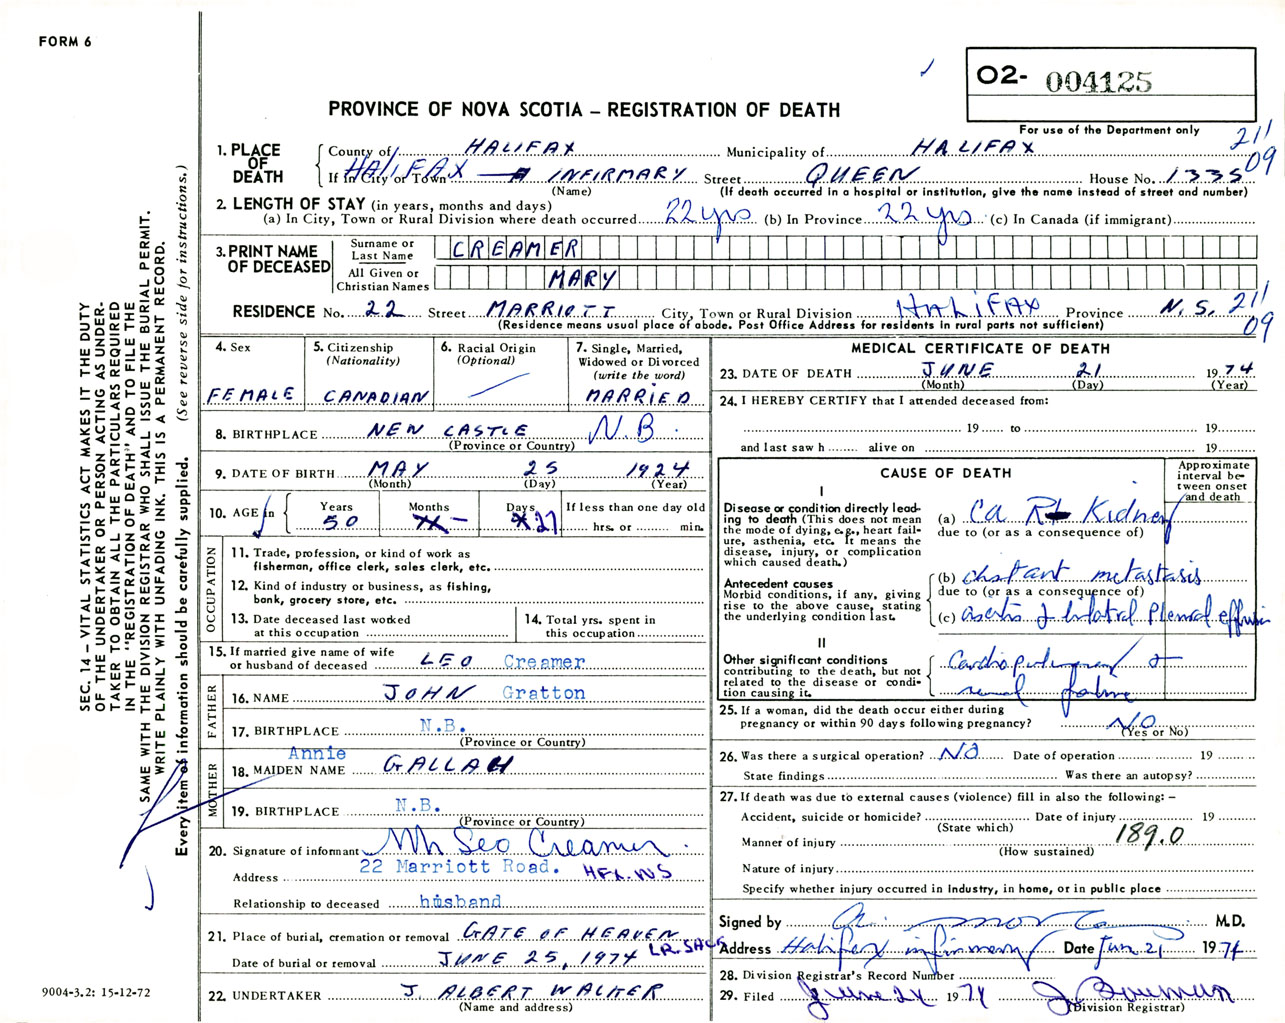 FORM 6
O2- 004125
PROVINCE OF NOVA SCOTIA – REGISTRATION OF DEATH
For use of the Department only
211
09
1. PLACE OF DEATH
County of HALIFAX Municipality of HALIFAX
If in City or Town HALIFAX INFIRMARY Street QUEEN House No. 1335
(Name) (If death occurred in a hospital or institution, give the name instead of street and number)
2. LENGTH OF STAY (in years, months and days)
(a) In City, Town or Rural Division where death occurred 22 yrs (b) In Province 22 yrs (c) In Canada (if immigrant)
3. PRINT NAME OF DECEASED
Surname or Last Name CREAMER
All Given or Christian Names MARY
RESIDENCE No. 22 Street MARRIOTT City, Town or Rural Division HALIFAX Province N.S. 211
09
(Residence means usual place of abode. Post Office Address for residents in rural parts not sufficient)
4. Sex
FEMALE
5. Citizenship
(Nationality)
CANADIAN
6. Racial Origin
(Optional)
7. Single, Married,
Widowed or Divorced
(write the word)
MARRIED
8. BIRTHPLACE NEW CASTLE N.B.
(Province or Country)
9. DATE OF BIRTH MAY 25 1924
(Month) (Day) (Year)
10. AGE in
Years Months Days If less than one day old
50 – 27 hrs. or min.
OCCUPATION
11. Trade, profession, or kind of work as
fisherman, office clerk, sales clerk, etc.
12. Kind of industry or business, as fishing,
bank, grocery store, etc.
13. Date deceased last worked
at this occupation
14. Total yrs. spent in
this occupation
15. If married give name of wife
or husband of deceased LEO Creamer
FATHER
16. NAME JOHN Gratton
17. BIRTHPLACE N.B.
(Province or Country)
MOTHER
Annie
18. MAIDEN NAME GALLAH
19. BIRTHPLACE N.B.
(Province or Country)
20. Signature of informant Leo Creamer
Address 22 Marriott Road. HFX. NS
Relationship to deceased husband
21. Place of burial, cremation or removal GATE OF HEAVEN
LR. SACK
Date of burial or removal JUNE 25, 1974
22. UNDERTAKER J. ALBERT WALKER
(Name and address)
MEDICAL CERTIFICATE OF DEATH
23. DATE OF DEATH JUNE 21 1974
(Month) (Day) (Year)
24. I HEREBY CERTIFY that I attended deceased from:
19 to 19
and last saw h alive on 19
CAUSE OF DEATH
Approximate
interval be-
tween onset
and death
I
Disease or condition directly lead-
ing to death (This does not mean
the mode of dying, e.g., heart fail-
ure, asthenia, etc. It means the
disease, injury, or complication
which caused death.)
(a) Ca Rt Kidney
due to (or as a consequence of)
Antecedent causes
Morbid conditions, if any, giving
rise to the above cause, stating
the underlying condition last.
(b) distant metastasis
due to (or as a consequence of)
(c) ascites & bilateral pleural effusion
II
Other significant conditions
contributing to the death, but not
related to the disease or condi-
tion causing it.
Cardiopulmonary &
renal failure
25. If a woman, did the death occur either during
pregnancy or within 90 days following pregnancy? NO
(Yes or No)
26. Was there a surgical operation? NO Date of operation 19
State findings Was there an autopsy?
27. If death was due to external causes (violence) fill in also the following: –
Accident, suicide or homicide? Date of injury 19
(State which)
189.0
Manner of injury
(How sustained)
Nature of injury
Specify whether injury occurred in Industry, in home, or in public place
Signed by M.D.
Address Halifax infirmary Date Jun 21 1974
28. Division Registrar's Record Number
29. Filed June 24 1974
(Division Registrar)
SEC. 14 – VITAL STATISTICS ACT MAKES IT THE DUTY
OF THE UNDERTAKER OR PERSON ACTING AS UNDER-
TAKER TO OBTAIN ALL THE PARTICULARS REQUIRED
IN THE "REGISTRATION OF DEATH" AND TO FILE THE
SAME WITH THE DIVISION REGISTRAR WHO SHALL ISSUE THE BURIAL PERMIT.
WRITE PLAINLY WITH UNFADING INK. THIS IS A PERMANENT RECORD.
Every item of information should be carefully supplied. (See reverse side for instructions.)
9004-3.2: 15-12-72